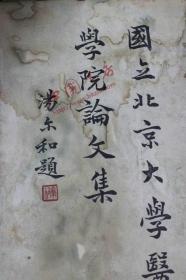 國立北京大學醫
學院論文集
湯尔和題